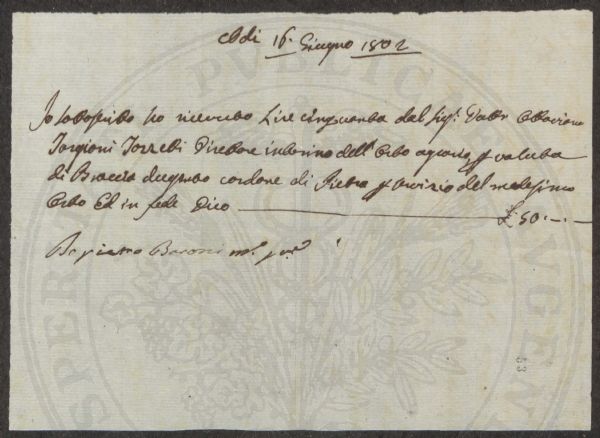 Adi 16. Giugno 1802
Io sottoscritto ho ricevuto Lire cinquanta dal Sig.r Dottr Ottaviano
Targioni Tozzetti Direttore interino dell' Orto agrario p valuta
di Braccia dugento cordone di Pietra p servizio del medesimo
Orto Ed in fede Dico £ 50.-.-
Pietro Baroni m.o p.a
53
PUBLICAE
AUGEN
SPER